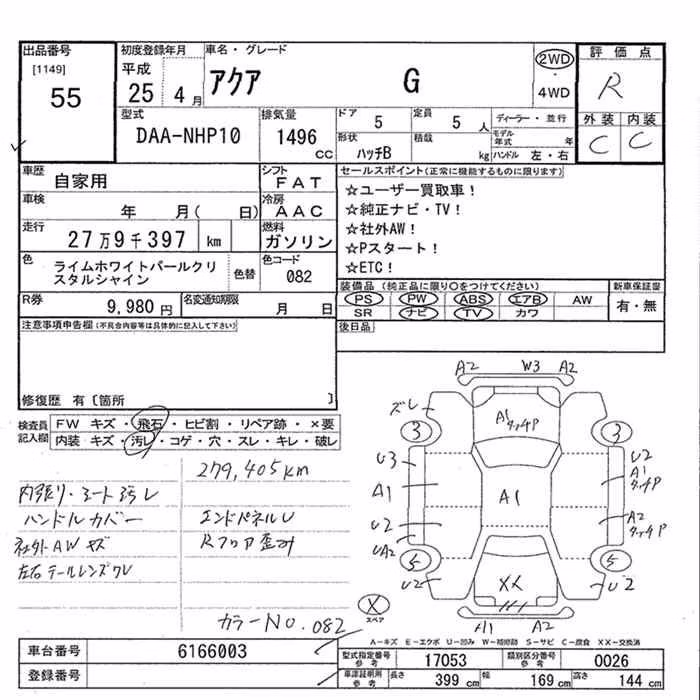 出品番号
[1149]
55
初度登録年月
平成
25 4月
車名・グレード
アクア G
2WD
・
4WD
評価点
R
外装 内装
C C
型式
DAA-NHP10
排気量
1496
CC
ドア 5
定員 5人
形状
ハッチB
積載
kg
ディーラー・並行
モデル年式 年
ハンドル 左・右
車歴
自家用
シフト
FAT
車検
年 月( 日)
冷房
AAC
走行
27万9千397 km
燃料
ガソリン
色
ライムホワイトパールクリスタルシャイン
色替
色コード
082
R券
9,980円
名変通知期限
月 日
セールスポイント(正常に機能するものに限ります)
☆ユーザー買取車!
☆純正ナビ・TV!
☆社外AW!
☆Pスタート!
☆ETC!
装備品(純正品に限り○をつけてください)
新車保証書
PS PW ABS エアB AW
SR ナビ TV カワ
有・無
後日品
注意事項申告欄(不具合内容等は具体的に記入して下さい)
修復歴 有〔箇所 〕
検査員記入欄
FW キズ・飛石・ヒビ割・リペア跡・×要
内装 キズ・汚レ・コゲ・穴・スレ・キレ・破レ
279,405km
内張り・シート汚レ
ハンドルカバー
エンドパネルU
社外AWキズ
Rフロア歪み
左右テールレンズワレ
カラーNo.082
A2 W3 A2
ズレ
3 3
A1
タッチP
U3
U2
A1
タッチP
A1
A1
U2
A2
タッチP
UA2
5 5
U2
XX
U2
X
スペア
A1 A2
A-キズ E-エクボ U-凹み W-補修跡 S-サビ C-腐食 XX-交換済
車台番号
6166003
登録番号
型式指定番号
参考
17053
類別区分番号
参考
0026
車庫証明用
参考
長さ 399 cm
幅 169 cm
高さ 144 cm